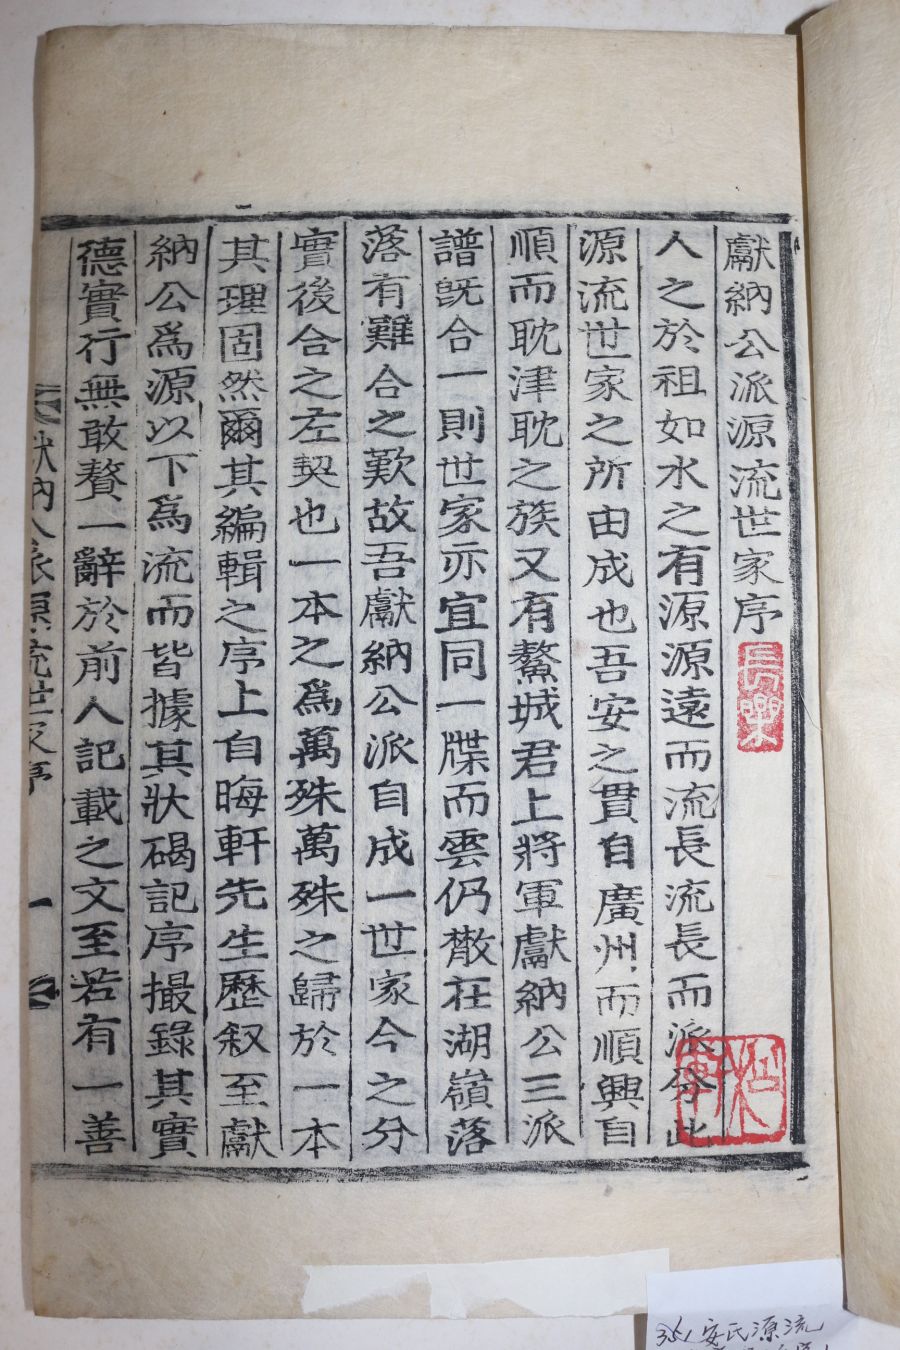 獻納公派源流世家序
長樂
人之於祖如水之有源源遠而流長流長而派分此
源流世家之所由成也吾安之貫自廣州而順興自
順而耽津耽之族又有鰲城君上將軍獻納公三派
譜旣合一則世家亦宜同一牒而雲仍散在湖嶺落
落有難合之歎故吾獻納公派自成一世家今之分
實後合之左契也一本之爲萬殊萬殊之歸於一本
其理固然爾其編輯之序上自晦軒先生歷叙至獻
納公爲源以下爲流而皆據其狀碣記序撮錄其實
德實行無敢贅一辭於前人記載之文至若有一善
獻納公派源流世家序
一
351 安氏源流